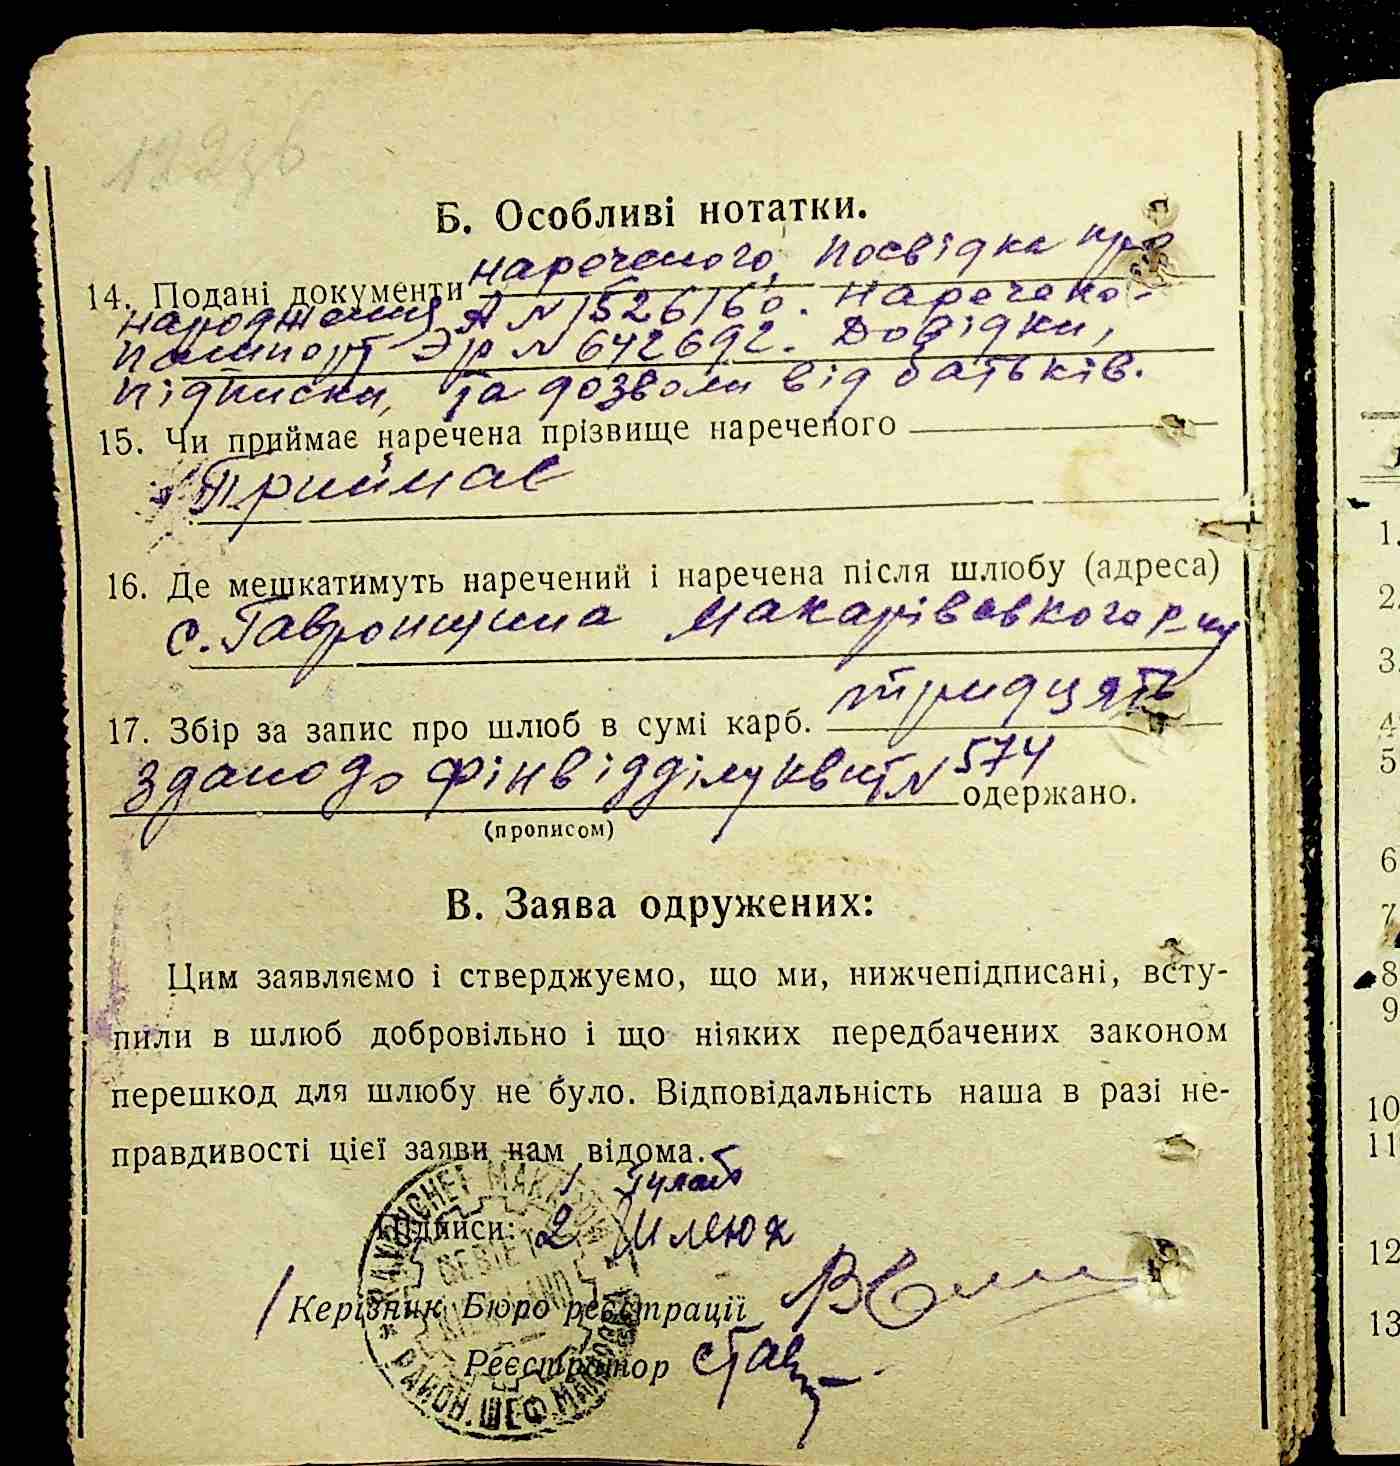 Б. Особливі нотатки.
14. Подані документи нареченого, посвідка про
народження А № 1526160. Наречено-
паспорт Эр № 642692. Довідки,
підписки, та дозволи від батьків.
15. Чи приймає наречена прізвище нареченого
Приймає
16. Де мешкатимуть наречений і наречена після шлюбу (адреса)
с. Гавронщина Макарівського р-ну
17. Збір за запис про шлюб в сумі карб. тридцять
здано до фінвідділу квит № 574 одержано.
(прописом)
В. Заява одружених:
Цим заявляємо і стверджуємо, що ми, нижчепідписані, всту-
пили в шлюб добровільно і що ніяких передбачених законом
перешкод для шлюбу не було. Відповідальність наша в разі не-
правдивості цієї заяви нам відома.
1
Підписи: 2 Шлеюк
Керівник Бюро реєстрації
Реєстратор
1.
2.
3.
4
5
6
7
8
9
10
11
12
13